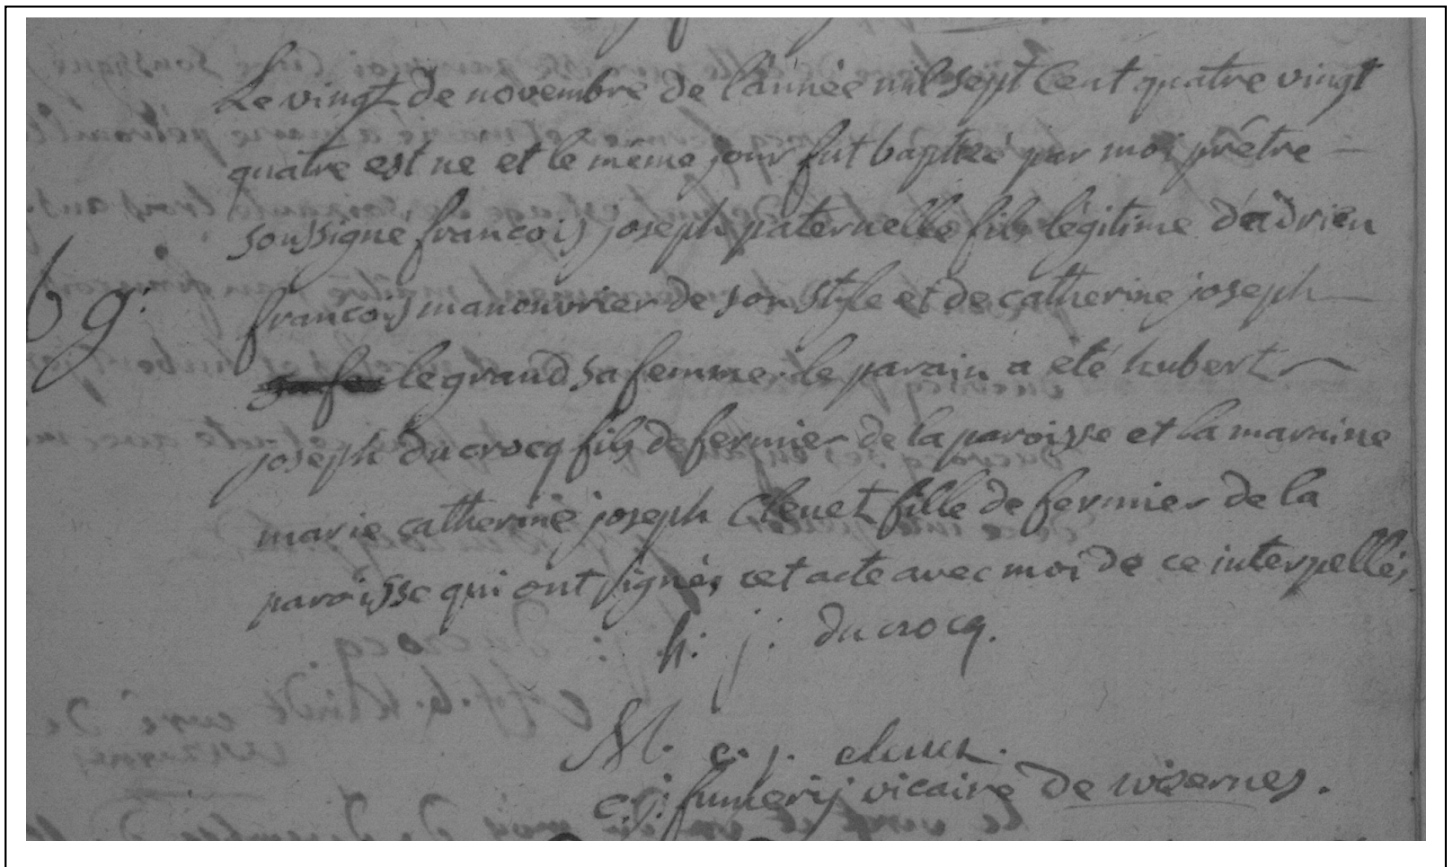 Le vingt de novembre de l'année mil sept Cent quatre vingt
quatre est ne et le meme jour fut baptisé par moi prêtre
soussigne francois joseph paternelle fils légitime d'adrien
69:
francois manouvrier de son style et de catherine joseph
legrand sa femme. le parain a eté hubert
joseph ducrocq fils de fermier de la paroisse et la maraine
marie catherine joseph Cleuet fille de fermier de la
paroisse qui ont signés cet acte avec moi de ce interpellés
h: j: ducrocq.
M. c. j. cleuet.
c: j: fumerij vicaire de wisernes.